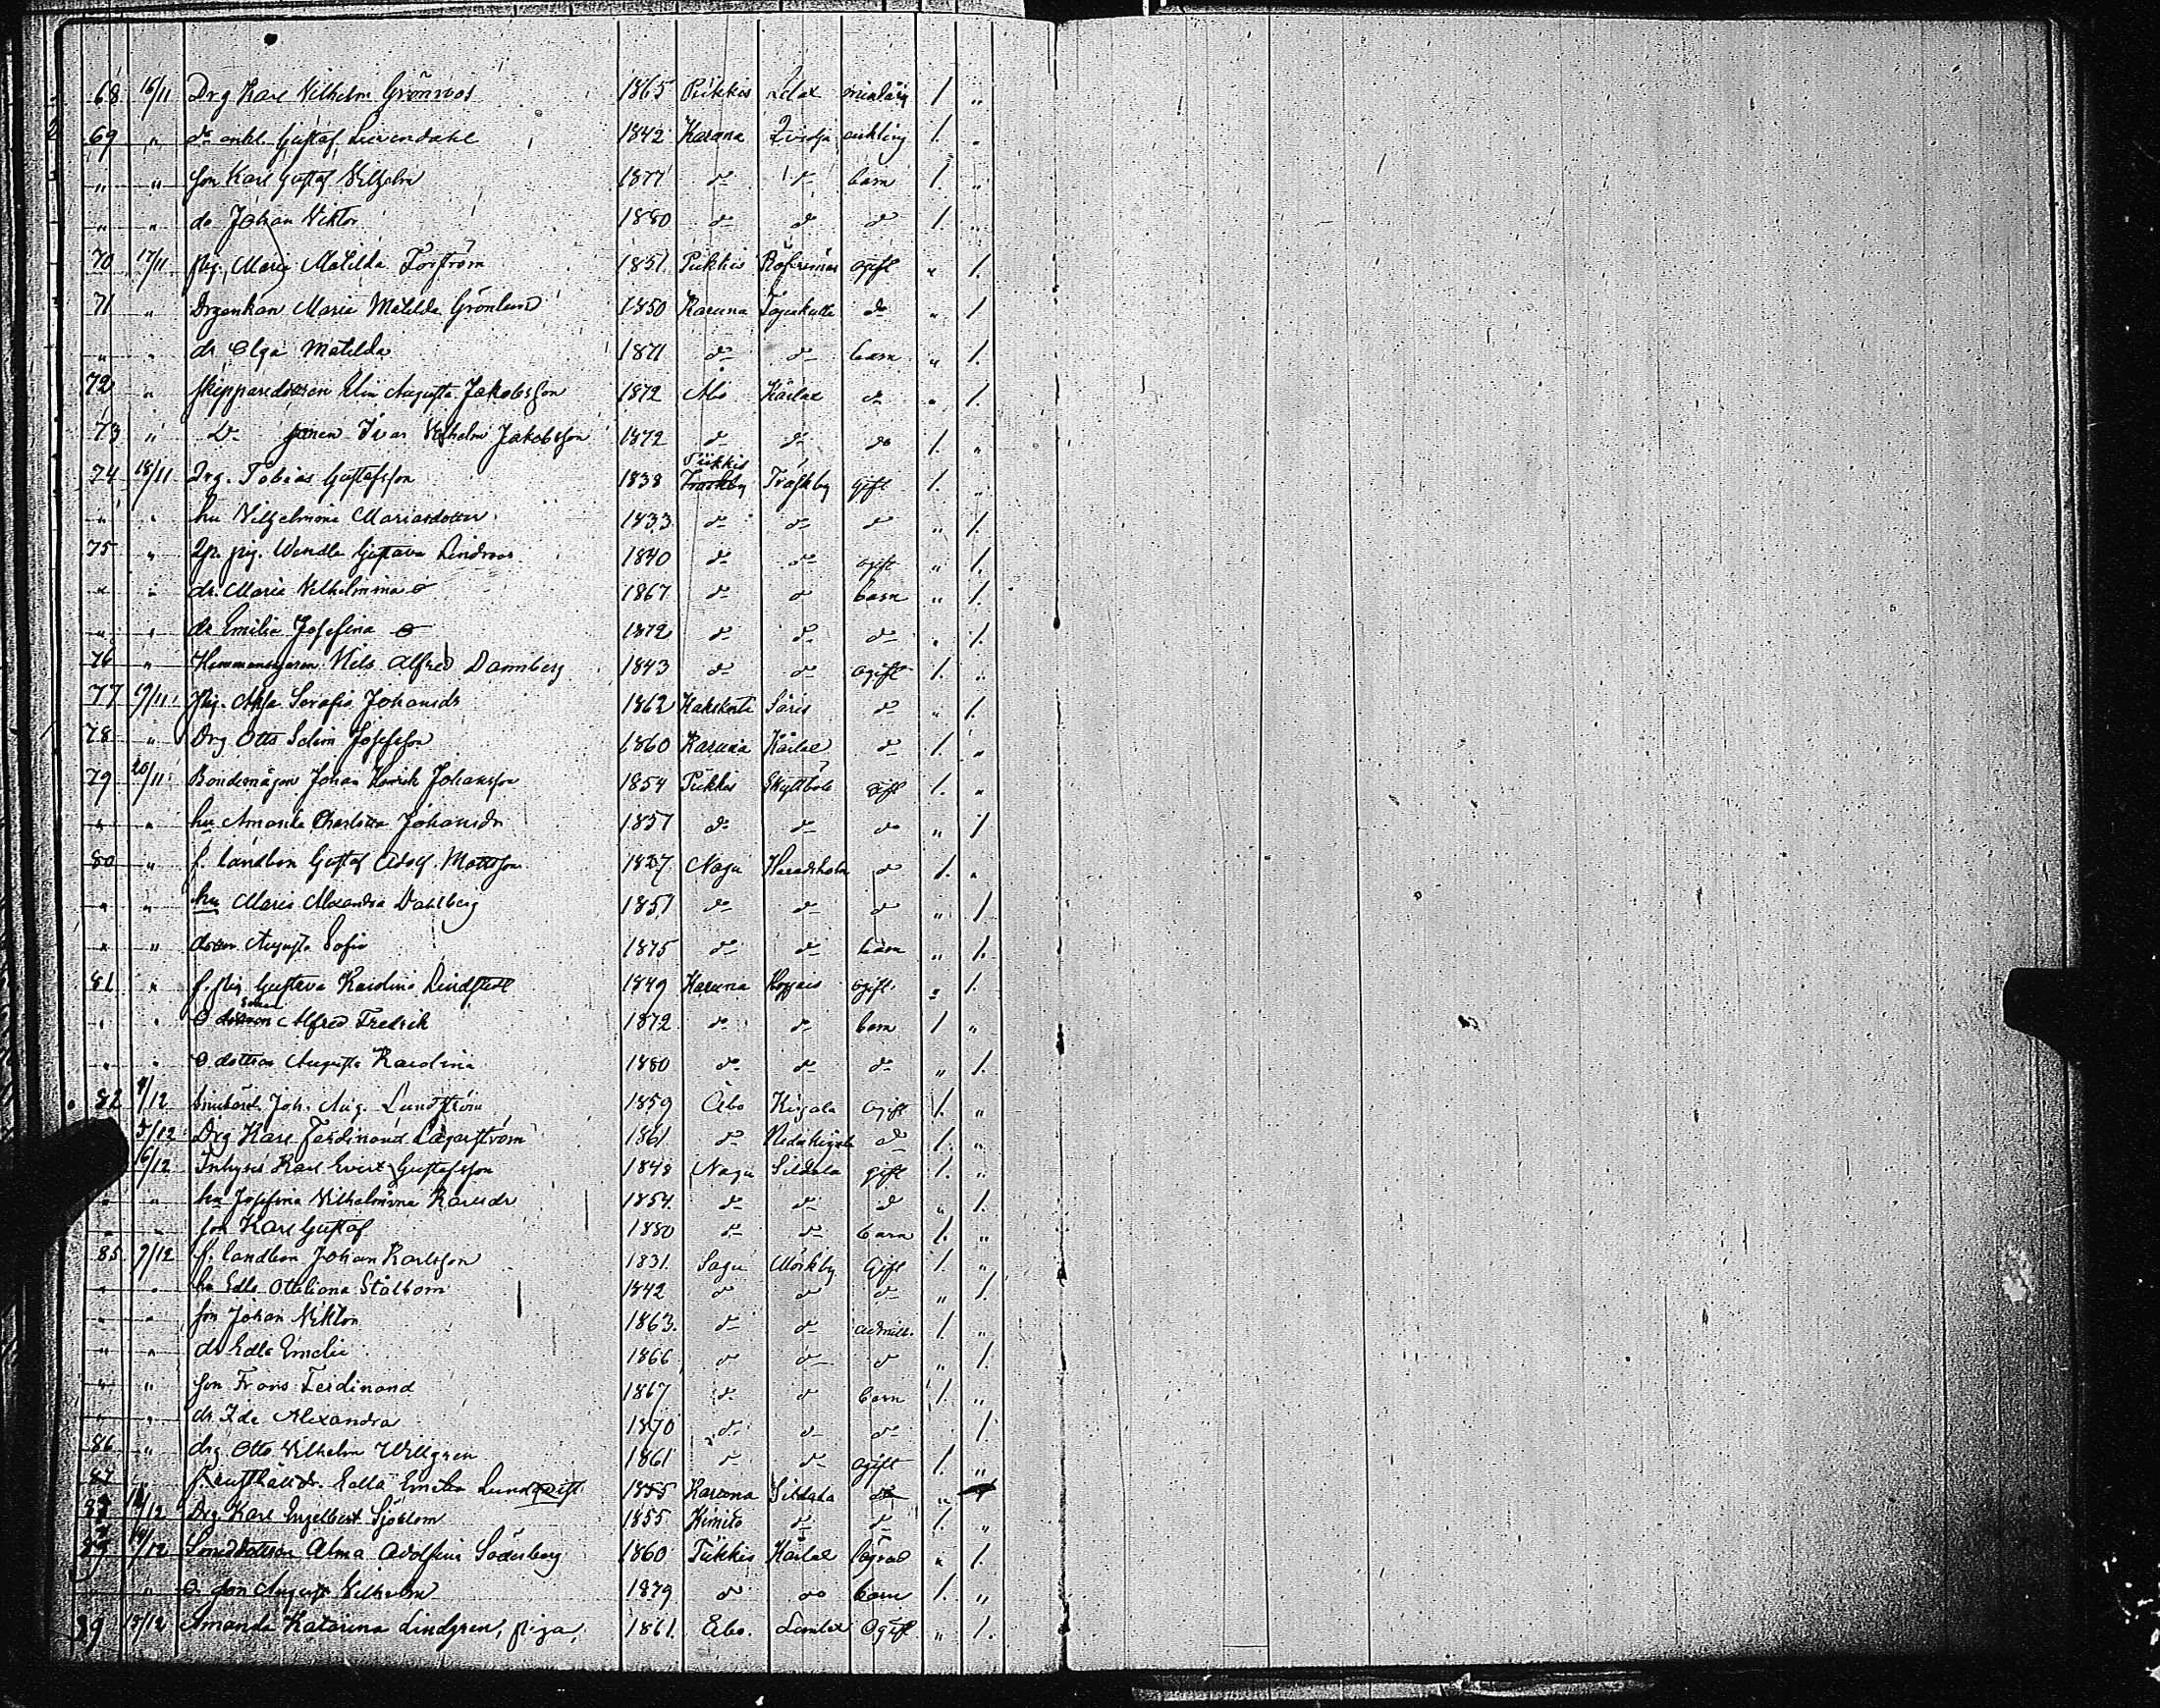 68 16/11 Drg Karl Vilhelm Grönroos 1865 Piikkis Lelax minderårig 1. "
69 " do enkl. Gustaf Leivendahl 1842 Karuna enkling 1. "
" " son Karl Gustaf Vilhelm 1877 do do barn 1. "
" " do Johan Viktor 1880 do do do 1. "
70 17/11 pig. Maria Matilda Forström 1851 Piikkis ogift " 1.
71 " Drgenkan Maria Matilda Grönlund 1850 Karuna do " 1
" " dr Olga Matilda 1871 do do barn " 1.
72 " skepparedottren Elin Augusta Jakobsson 1872 Åbo Kårlax do " 1.
73 " Do sonen Ivar Vilhelm Jakobsson 1872 do do do 1. "
74 18/11 Drg. Tobias Gustafsson 1838 Piikkis Träskby gift 1. "
" " hu Vilhelmina Mariasdotter 1833 do do do " 1.
75 " pig. Wendla Gustava Lindroos 1840 do do ogift " 1.
" " dr. Maria Vilhelmina 1867 do do barn " 1.
" " dr Emilia Josefina 1872 do do do " 1.
76 " Hemmansegaren Nils Alfred Dannberg 1843 do do ogift 1. "
77 19/11 Pig. Serafia Johansdr 1862 Kakskerta Säris do " 1.
78 " Drg Otto Selim Josefsson 1860 Karuna Kårlax do 1. "
79 20/11 Bondemågen Johan Henrik Johansson 1854 Piikkis Skyttböle gift 1. "
" " hu Amanda Charlotta Johansdr 1857 do do do " 1
80 " f. landbon Gustaf Adolf Mattsson 1827 Nagu do 1. "
" " hu Maria Alexandra Dahlberg 1851 do do do " 1
" " dottren Augusta Sofia 1875 do do barn " 1.
81 " f. pig Gustava Karolina Lindstedt 1849 Karuna ogift " 1.
" " D sonen Alfred Fredrik 1872 do do barn 1 "
" " D dottren Augusta Karolina 1880 do do do " 1.
82 4/12 Joh. Aug. Lundström 1859 Åbo Kirjala ogift 1. "
5/12 Drg Karl Ferdinand Lagerström 1861 do Nederkirjala do 1. "
6/12 Inhyses Karl Evert Gustafsson 1848 Nagu Sildala gift 1. "
" " hu Josefina Vilhelmina Karlsdr 1854 do do do " 1.
" " son Karl Gustaf 1880 do do barn 1. "
85 9/12 f. landbon Johan Karlsson 1831 Sagu Mörkby Gift 1. "
" " hu Edla Ottiliana Stålbom 1842 do do do " 1.
" " son Johan Viktor 1863. do do admitt. 1. "
" " dr Edla Emelie 1866 do do do " 1.
" " son Frans Ferdinand 1867 do do barn 1. "
" " dr Ida Alexandra 1870 do do do " 1
86 " drg Otto Vilhelm Willgren 1861 do do ogift 1. "
87 " f. Emilia Lundqvist 1855 Karuna Sildala do "
12/12 Drg. Karl Engelbert Sjöblom 1855 Kimito do do 1. "
14/12 Smeddottren Alma Adolfina Söderberg 1860 Piikkis Kårlax lägrad " 1.
" " D son August Vilhelm 1879 do do barn 1. "
89 17/12 Amanda Katarina Lindgren, piga, 1861. Åbo. Lemlax Ogift " 1.